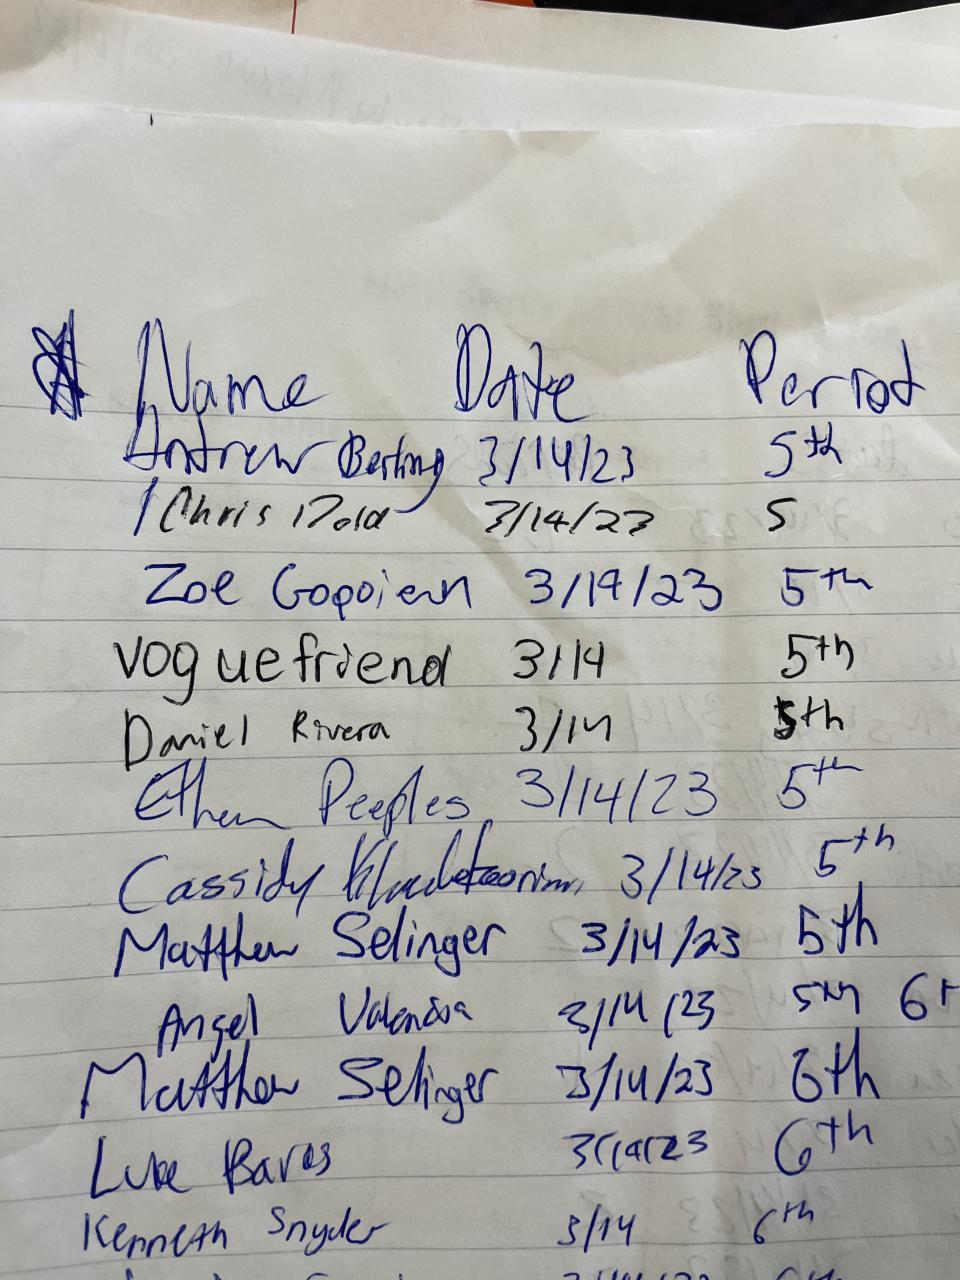 Name Date Period
Andrew Berling 3/14/23 5th
Chris Dold 3/14/23 5
Zoe Gopoian 3/14/23 5th
voguefriend 3/14 5th
Daniel Rivera 3/14 5th
Ethan Peeples 3/14/23 5th
Cassidy 3/14/23 5th
Matthew Selinger 3/14/23 5th
Angel Valencia 3/14/23 5th
Matthew Selinger 3/14/23 6th
Luke 3/14/23 6th
Kenneth Snyder 3/14 6th